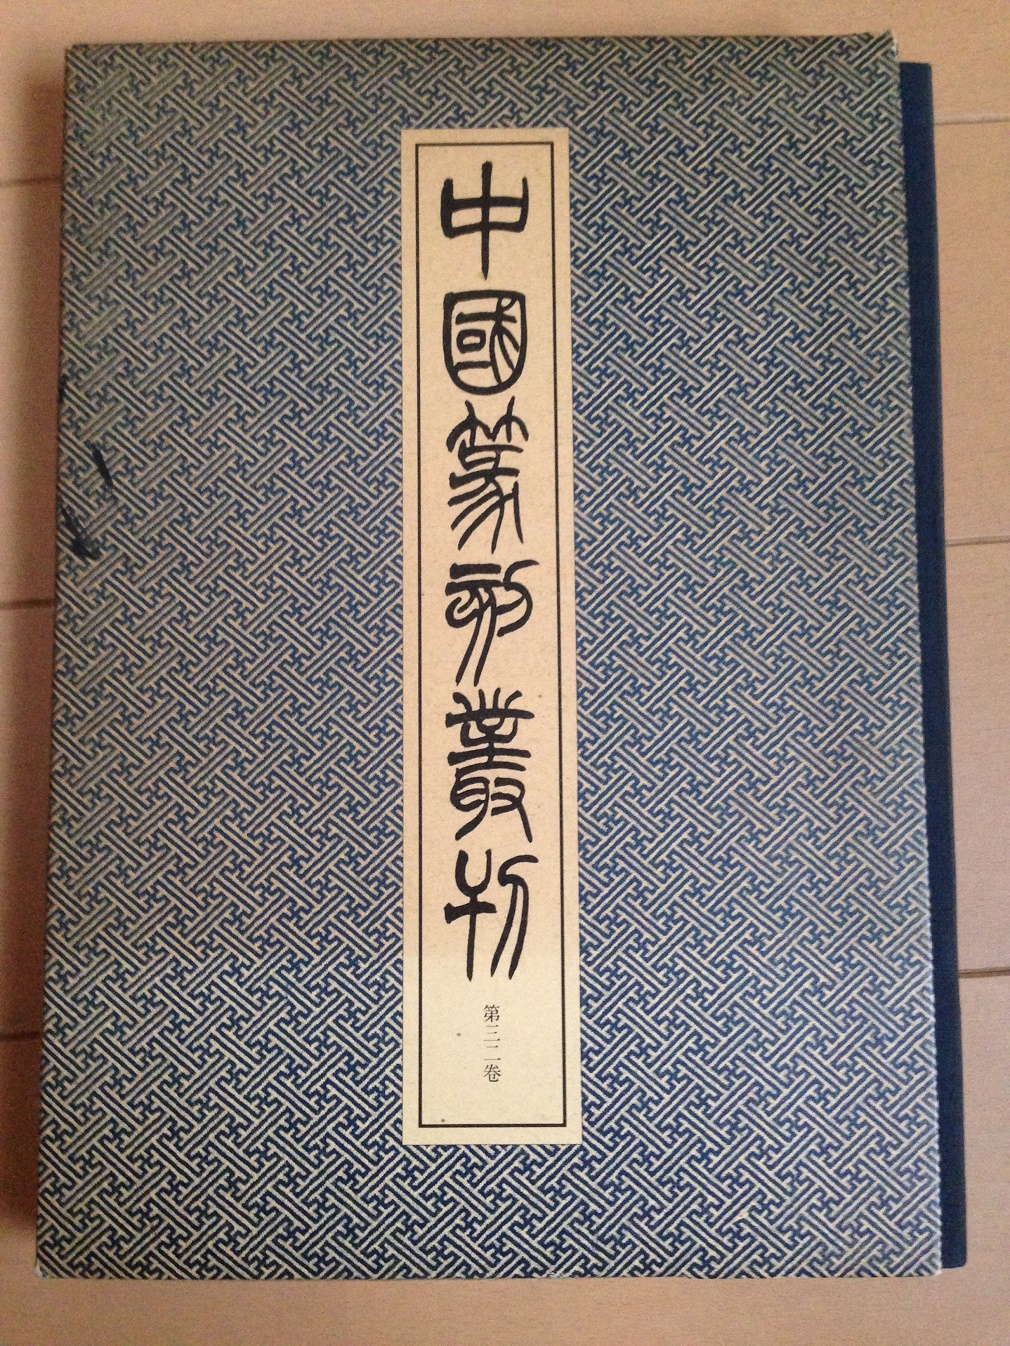 中國篆刻叢刊
第三二卷